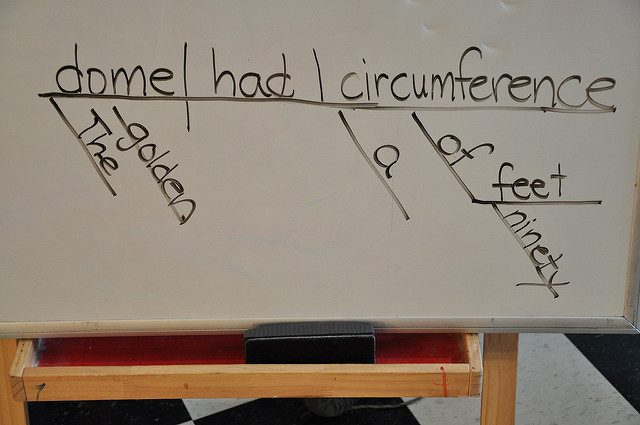 dome had circumference
The golden a of feet
ninety